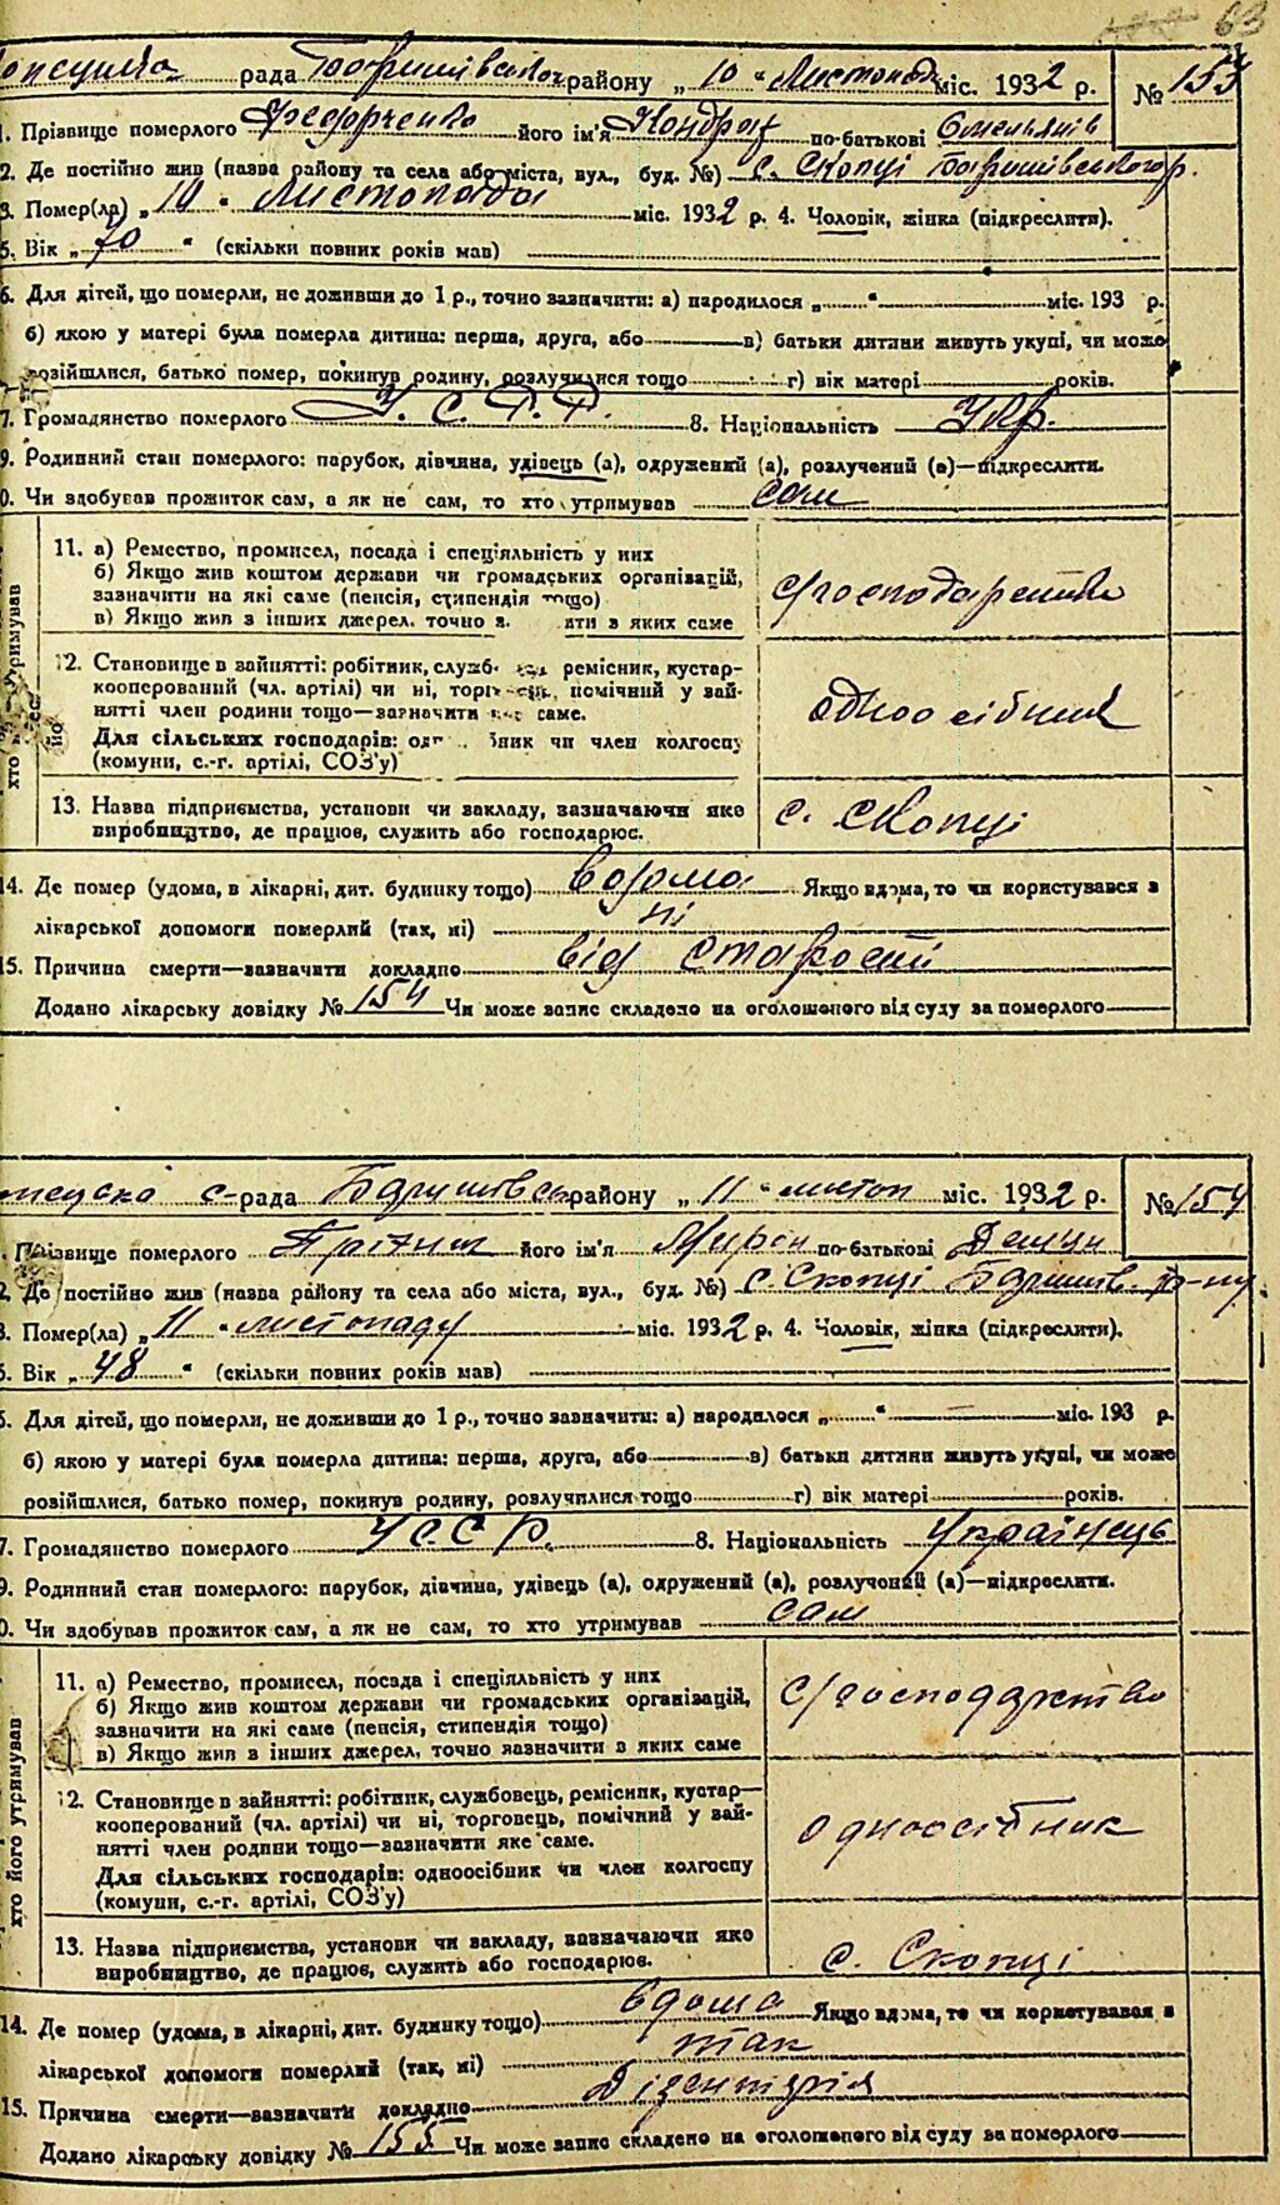 63
рада Баришівського району „ 10 " Листопада міс. 1932 р. № 153
1. Прізвище померлого Федорченко його ім'я Кондрат по-батькові Омельянів
2. Де постійно жив (назва району та села або міста, вул., буд. №) с. Скопці Баришівського р.
3. Помер(ла) „ 10 " Листопада міс. 1932 р. 4. Чоловік, жінка (підкреслити).
5. Вік „ 70 " (скільки повних років мав)
6. Для дітей, що померли, не доживши до 1 р., точно зазначити: а) народилося „ " міс. 193 р.
б) якою у матері була померла дитина: перша, друга, або в) батьки дитини живуть укупі, чи може
розійшлися, батько помер, покинув родину, розлучилися тощо г) вік матері років.
7. Громадянство померлого У. С. Р. Р. 8. Національність Укр.
9. Родинний стан померлого: парубок, дівчина, удівець (а), одружений (а), розлучений (а)—підкреслити.
0. Чи здобував прожиток сам, а як не сам, то хто утримував сам
11. а) Ремество, промисел, посада і спеціяльність у них
б) Якщо жив коштом держави чи громадських організацій,
зазначити на які саме (пенсія, стипендія тощо)
в) Якщо жив з інших джерел, точно з яких саме
с/господарство
12. Становище в зайнятті: робітник, служб ремісник, кустар-
кооперований (чл. артілі) чи ні, торг помічний у зай-
нятті член родини тощо—зазначити саме.
Для сільських господарів: одноосібник чи член колгоспу
(комуни, с.-г. артілі, СОЗ'у)
одноосібник
13. Назва підприємства, установи чи закладу, зазначаючи яке
виробництво, де працює, служить або господарює.
с. Скопці
14. Де помер (удома, в лікарні, дит. будинку тощо) вдома Якщо вдома, то чи користувався з
лікарської допомоги померлий (так, ні) ні
15. Причина смерти—зазначити докладно від старости
Додано лікарську довідку № 154 Чи може запис складено на оголошеного від суду за померлого
с-рада Баришівськ району „ 11 " листоп міс. 1932 р. № 154
Прізвище померлого його ім'я Мирон по-батькові
2. Де постійно жив (назва району та села або міста, вул., буд. №) с. Скопці Баришів. р-ну
3. Помер(ла) „ 11 " листопаду міс. 1932 р. 4. Чоловік, жінка (підкреслити).
5. Вік „ 48 " (скільки повних років мав)
6. Для дітей, що померли, не доживши до 1 р., точно зазначити: а) народилося „ " міс. 193 р.
б) якою у матері була померла дитина: перша, друга, або в) батьки дитини живуть укупі, чи може
розійшлися, батько помер, покинув родину, розлучилися тощо г) вік матері років.
7. Громадянство померлого У С. С Р. 8. Національність Українець
9. Родинний стан померлого: парубок, дівчина, удівець (а), одружений (а), розлучений (а)—підкреслити.
0. Чи здобував прожиток сам, а як не сам, то хто утримував сам
хто його утримував
11. а) Ремество, промисел, посада і спеціяльність у них
б) Якщо жив коштом держави чи громадських організацій,
зазначити на які саме (пенсія, стипендія тощо)
в) Якщо жив з інших джерел, точно зазначити з яких саме
с/господарство
12. Становище в зайнятті: робітник, службовець, ремісник, кустар—
кооперований (чл. артілі) чи ні, торговець, помічний у зай-
нятті член родини тощо—зазначити яке саме.
Для сільських господарів: одноосібник чи член колгоспу
(комуни, с.-г. артілі, СОЗ'у)
одноосібник
13. Назва підприємства, установи чи закладу, зазначаючи яке
виробництво, де працює, служить або господарює.
с. Скопці
14. Де помер (удома, в лікарні, дит. будинку тощо) вдома Якщо вдома, то чи користувався з
лікарської допомоги померлий (так, ні) так
15. Причина смерти—зазначити докладно Дізентерія
Додано лікарську довідку № 155 Чи може запис складено на оголошеного від суду за померлого